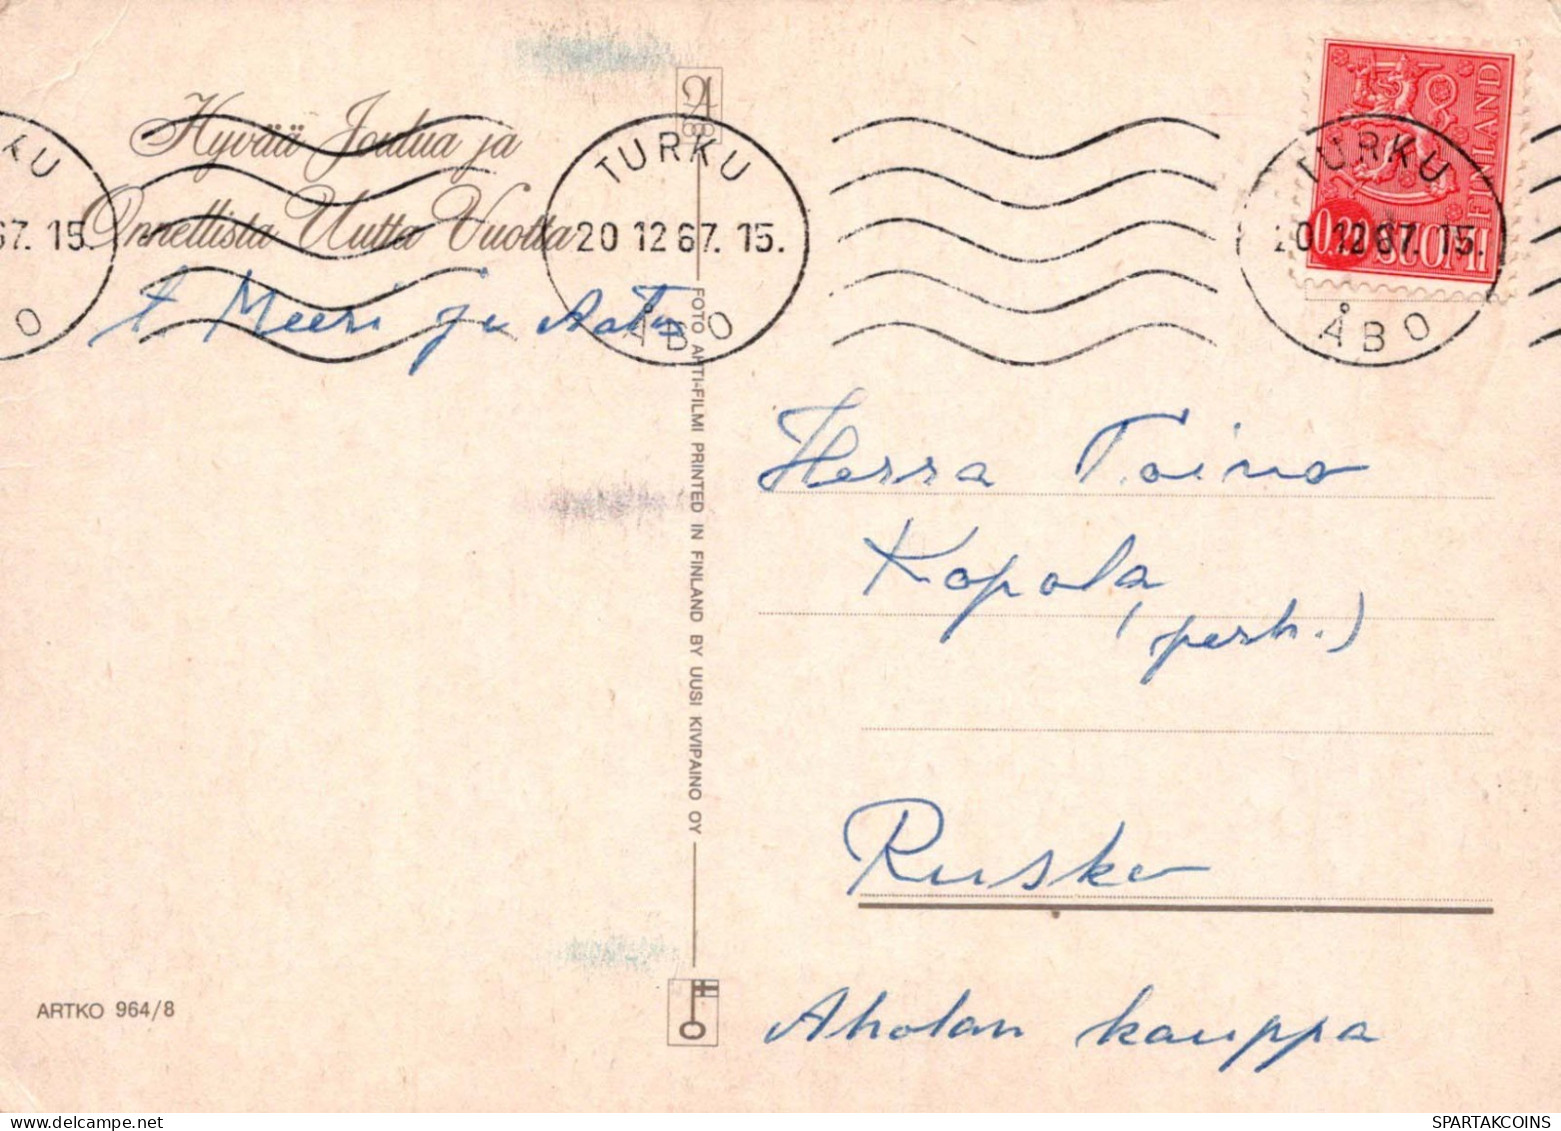 Hyvää Joulua ja
Onnellista Uutta Vuotta
t. Meeri ja
KU
67. 15.
O
TURKU
20 12 67. 15.
ÅBO
TURKU
20 12 67. 15.
ÅBO
FINLAND
0,20 SUOMI
FOTO ANTI-FILMI PRINTED IN FINLAND BY UUSI KIVIPAINO OY
Herra Toivo
Kopola
(perh.)
Rusko
Aholan kauppa
ARTKO 964/8
SPARTAKCOINS